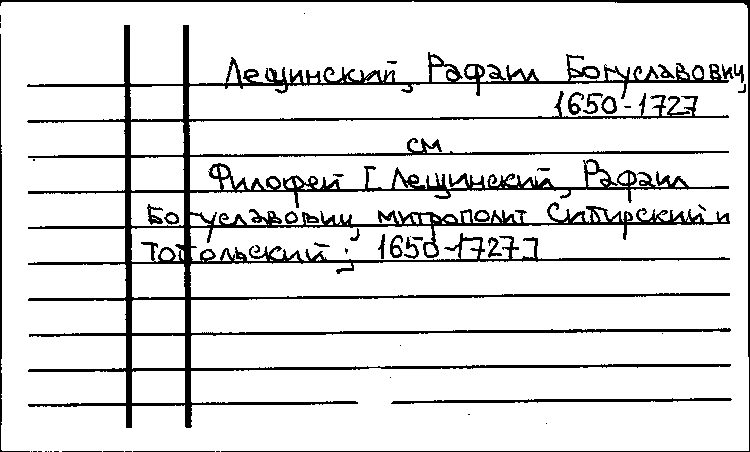 Лещинский, Рафаил Богуславович,
1650-1727
см.
Филофей [Лещинский, Рафаил
Богуславович, митрополит Сибирский и
Тобольский; 1650-1727]